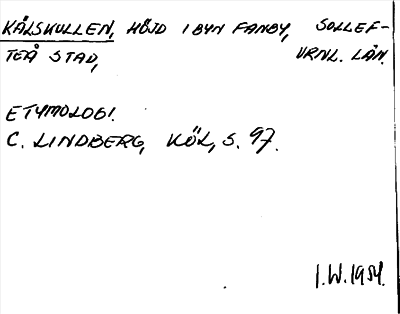 KÅLSKULLEN, HÖJD I BYN FANBY, SOLLEF-
TEÅ STAD, VRNL. LÄN.
ETYMOLOGI.
C. LINDBERG, KÖL, S. 97.
I.W. 1954.